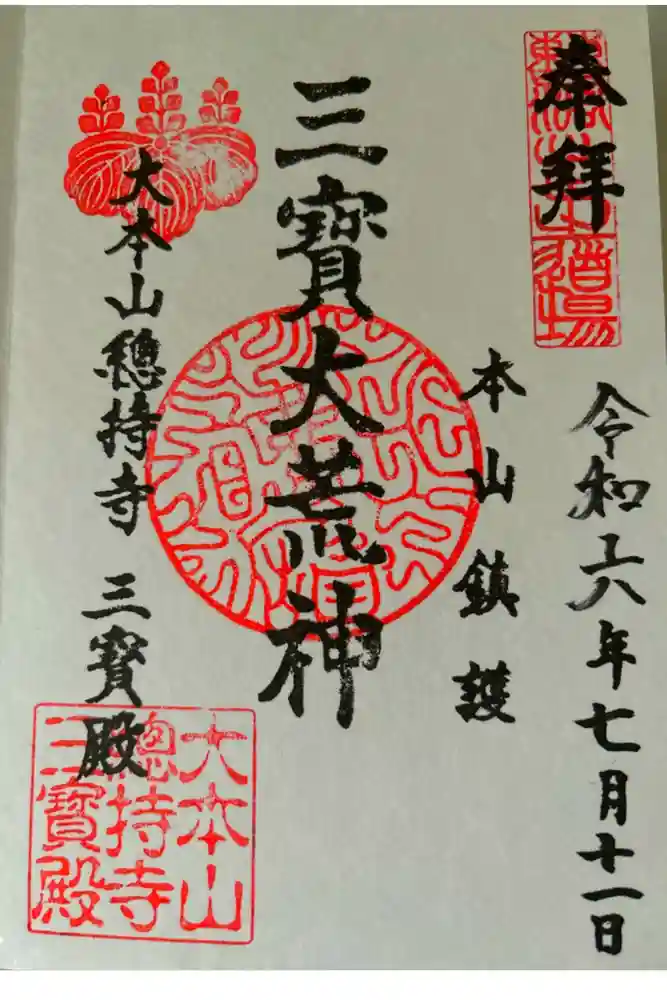 奉拝
令和六年七月十一日
本山鎮護
三寶大荒神
大本山總持寺 三寶殿
大本山
總持寺
三寶殿